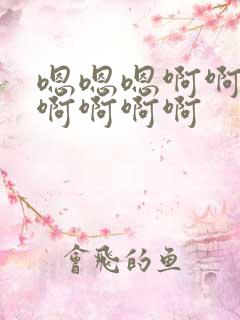 嗯嗯嗯啊啊
啊啊啊啊
會飛的鱼